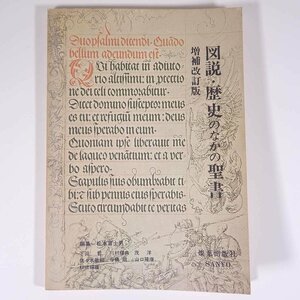 Duo psalmi dicendi. Quãdo
bellum adeundum est.
QVi habitat in adiuto
rio altissimi: in protectio
ne dei celi commorabitur.
Dicet domino susceptor meus
es tu: et refugiũ meum: deus
meus sperabo in eum.
Quoniam ipse liberauit me
de laqueo venãtium: et a ver
bo aspero.
Scapulis suis obumbrabit ti
bi: et sub pennis eius sperabis.
Scuto circũdabit te veritas
図説・歴史のなかの聖書
増補改訂版
燦葉出版社
SANYO